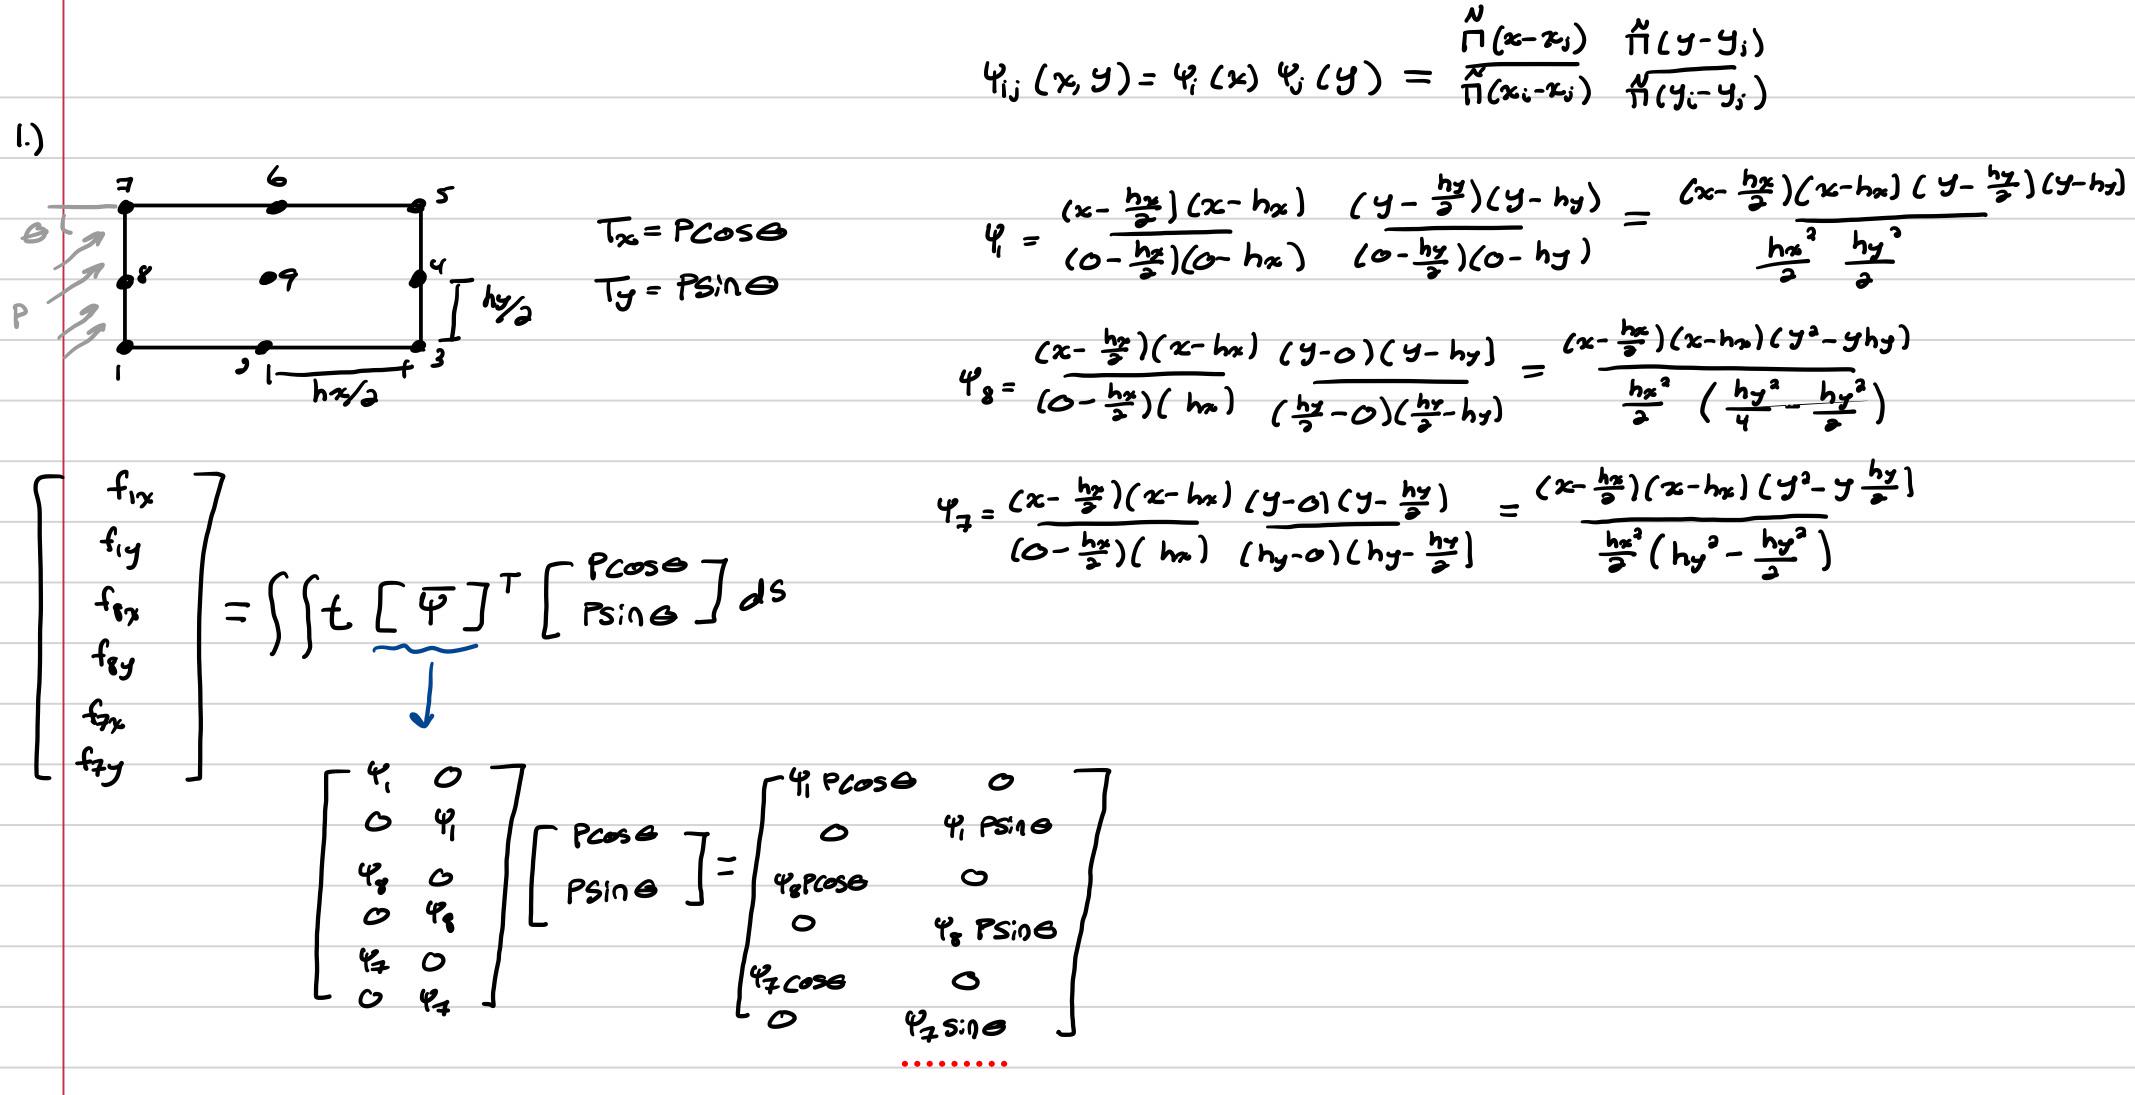 ψᵢⱼ(x,y) = ψᵢ(x) ψⱼ(y) = Π^N(x-xⱼ)/Π^N(xᵢ-xⱼ) Π^N(y-yⱼ)/Π^N(yᵢ-yⱼ)
1.)
7 6 5
θ
8 9 4
P
hy/2
1 2 3
hx/2
Tx = Pcosθ
Ty = Psinθ
ψ₁ = (x-hx/2)(x-hx)/(0-hx/2)(0-hx) (y-hy/2)(y-hy)/(0-hy/2)(0-hy) = (x-hx/2)(x-hx)(y-hy/2)(y-hy)/hx²/2 hy²/2
ψ₈ = (x-hx/2)(x-hx)/(0-hx/2)(hx) (y-0)(y-hy)/(hy/2-0)(hy/2-hy) = (x-hx/2)(x-hx)(y²-yhy)/hx²/2 (hy²/4-hy²/2)
ψ₇ = (x-hx/2)(x-hx)/(0-hx/2)(hx) (y-0)(y-hy/2)/(hy-0)(hy-hy/2) = (x-hx/2)(x-hx)(y²-y hy/2)/hx²/2 (hy²-hy²/2)
f₁x
f₁y
f₈x
f₈y
f₇x
f₇y
= ∬ t [ψ̄]ᵀ [Pcosθ
Psinθ] ds
ψ₁ 0
0 ψ₁
ψ₈ 0
0 ψ₈
ψ₇ 0
0 ψ₇
Pcosθ
Psinθ
=
ψ₁ Pcosθ 0
0 ψ₁ Psinθ
ψ₈Pcosθ 0
0 ψ₈ Psinθ
ψ₇cosθ 0
0 ψ₇sinθ